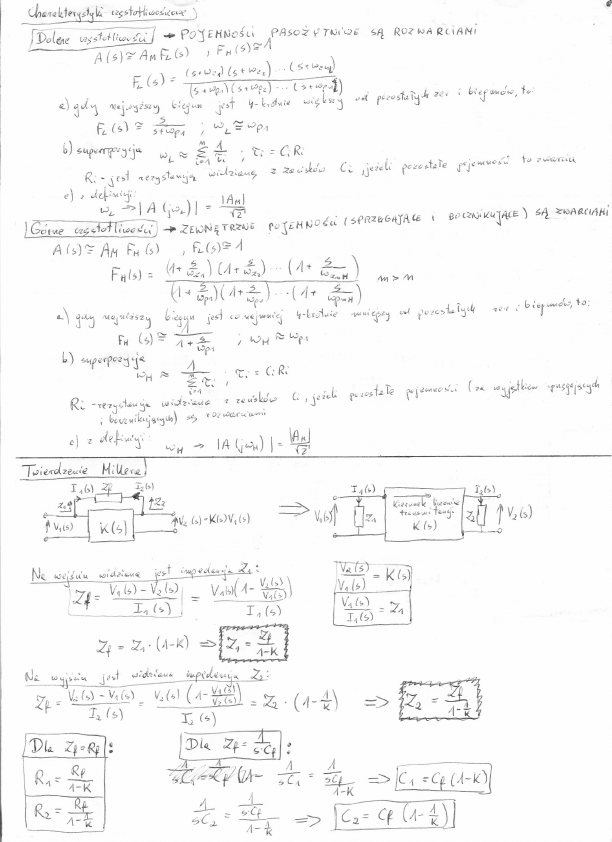 Charakterystyki częstotliwościowe:
Dolne częstotliwości → POJEMNOŚCI PASOŻYTNICZE SĄ ROZWARCIAMI
A(s) ≅ A_M F_L(s) , F_H(s) ≅ 1
F_L(s) = (s+ω_z1)(s+ω_z2)...(s+ω_zn) / (s+ω_p1)(s+ω_p2)...(s+ω_pn)
a) gdy najwyższy biegun jest 4-krotnie większy od pozostałych zer i biegunów, to:
F_L(s) ≅ s/(s+ω_p1) ; ω_L ≅ ω_p1
b) superpozycja ω_L ≈ Σ_{i=1}^{m} 1/τ_i ; τ_i = C_i R_i
R_i - jest rezystancją widzianą z zacisków C_i, jeżeli pozostałe pojemności to zwarcia
c) z definicji:
ω_L → |A(jω_L)| = |A_M|/√2
Górne częstotliwości → ZEWNĘTRZNE POJEMNOŚCI (SPRZĘGAJĄCE I BOCZNIKUJĄCE) SĄ ZWARCIAMI
A(s) ≅ A_M F_H(s) , F_L(s) ≅ 1
F_H(s) = (1+s/ω_z1)(1+s/ω_z2)...(1+s/ω_znH) / (1+s/ω_p1)(1+s/ω_p2)...(1+s/ω_pmH) m > n
a) gdy najniższy biegun jest co najmniej 4-krotnie mniejszy od pozostałych zer i biegunów, to:
F_H(s) ≅ 1/(1+s/ω_p1) ; ω_H ≈ ω_p1
b) superpozycja
ω_H ≈ 1/(Σ_{i=1}^{m} τ_i) ; τ_i = C_i R_i
R_i - rezystancja widziana z zacisków C_i, jeżeli pozostałe pojemności (za wyjątkiem sprzęgających
i bocznikujących) są rozwarciami
c) z definicji:
ω_H → |A(jω_H)| = |A_M|/√2
Twierdzenie Millera:
I_1(s) Z_f I_2(s)
Z_1 Z_2
V_1(s) K(s) V_2(s)=K(s)V_1(s)
⇒
I_1(s) I_2(s)
V_1(s) Z_1 kierunek liczenia transmitancji K(s) Z_2 V_2(s)
Na wejściu widziana jest impedancja Z_1:
Z_f = (V_1(s) - V_2(s))/I_1(s) = V_1(s)(1 - V_2(s)/V_1(s))/I_1(s)
V_2(s)/V_1(s) = K(s)
V_1(s)/I_1(s) = Z_1
Z_f = Z_1·(1-K) ⇒ Z_1 = Z_f/(1-K)
Na wyjściu jest widziana impedancja Z_2:
Z_f = (V_2(s) - V_1(s))/I_2(s) = V_2(s)(1 - V_1(s)/V_2(s))/I_2(s) = Z_2·(1 - 1/K) ⇒ Z_2 = Z_f/(1 - 1/K)
Dla Z_f = R_f :
R_1 = R_f/(1-K)
R_2 = R_f/(1 - 1/K)
Dla Z_f = 1/(s·C_f) :
1/(sC_1) = (1/(sC_f))/(1-K) ⇒ C_1 = C_f(1-K)
1/(sC_2) = (1/(s·C_f))/(1 - 1/K) ⇒ C_2 = C_f(1 - 1/K)